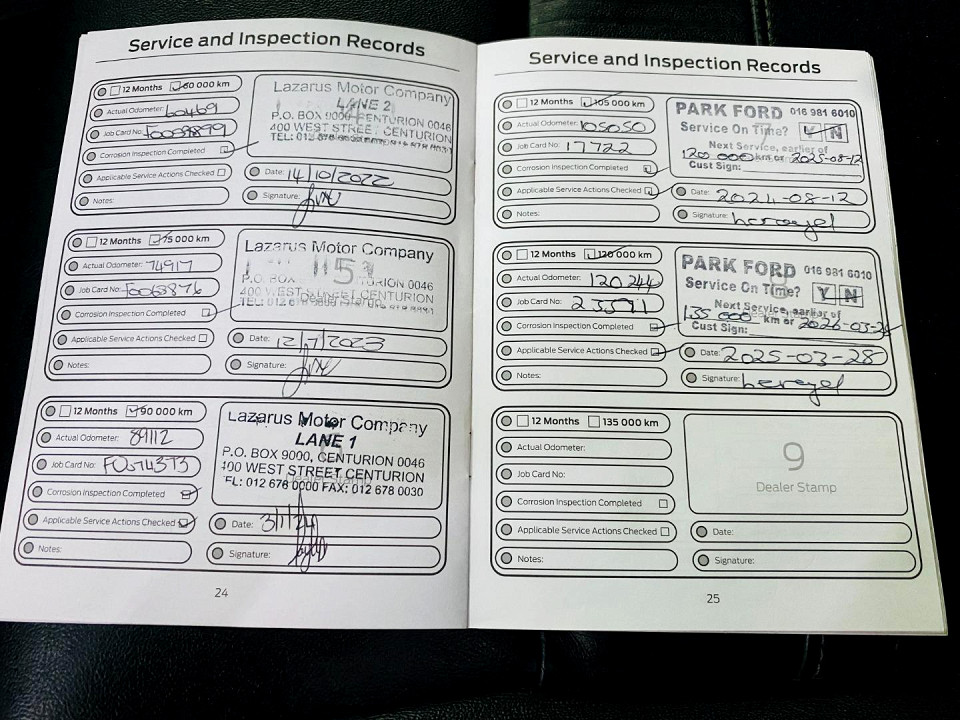 Service and Inspection Records
12 Months 60 000 km
Actual Odometer: 60469
Job Card No:
Corrosion Inspection Completed
Applicable Service Actions Checked
Notes:
Lazarus Motor Company
LANE 2
P.O. BOX 9000, CENTURION 0046
400 WEST STREET, CENTURION
TEL: 012
Date: 14/10/2022
Signature:
12 Months 75 000 km
Actual Odometer: 74917
Job Card No:
Corrosion Inspection Completed
Applicable Service Actions Checked
Notes:
Lazarus Motor Company
5
P.O. BOX CENTURION 0046
400 WEST STREET, CENTURION
Date: 12/7/2023
Signature:
12 Months 90 000 km
Actual Odometer: 89112
Job Card No:
Corrosion Inspection Completed
Applicable Service Actions Checked
Notes:
Lazarus Motor Company
LANE 1
P.O. BOX 9000, CENTURION 0046
400 WEST STREET CENTURION
TEL: 012 678 0000 FAX: 012 678 0030
Date: 3/1/24
Signature:
24
Service and Inspection Records
12 Months 105 000 km
Actual Odometer: 105050
Job Card No: 17722
Corrosion Inspection Completed
Applicable Service Actions Checked
Notes:
PARK FORD 016 981 6010
Service On Time? Y N
Next Service, earlier of
120 000 km or 2025-08-12
Cust Sign:
Date: 2024-08-12
Signature:
12 Months 120 000 km
Actual Odometer: 120244
Job Card No: 23591
Corrosion Inspection Completed
Applicable Service Actions Checked
Notes:
PARK FORD 016 981 6010
Service On Time? Y N
Next Service, earlier of
135 000 km or 2026-03-28
Cust Sign:
Date: 2025-03-28
Signature:
12 Months 135 000 km
Actual Odometer:
Job Card No:
Corrosion Inspection Completed
Applicable Service Actions Checked
Notes:
9
Dealer Stamp
Date:
Signature:
25